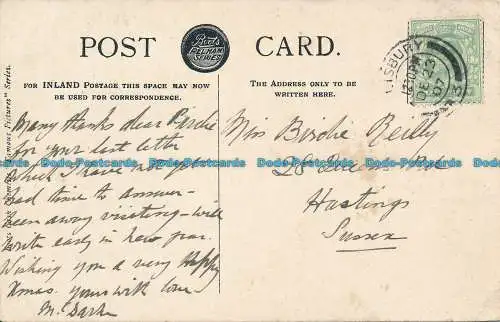 POST CARD.
Boots
PELHAM
SERIES
FOR INLAND POSTAGE THIS SPACE MAY NOW
BE USED FOR CORRESPONDENCE.
THE ADDRESS ONLY TO BE
WRITTEN HERE.
Famous Pictures" Series.
Many thanks dear Birdie
for your last letter
which I have not yet
had time to answer -
been away visiting - will
write early in new year.
Wishing you a very Happy
Xmas. yours with love
M.
Miss Birdie Reilly
28 Queens
Hastings
Sussex
SBURY
DE 23
07
Dodo-Postcards Dodo-Postcards Dodo-Postcards Dodo-Postcards Dodo-Postcards